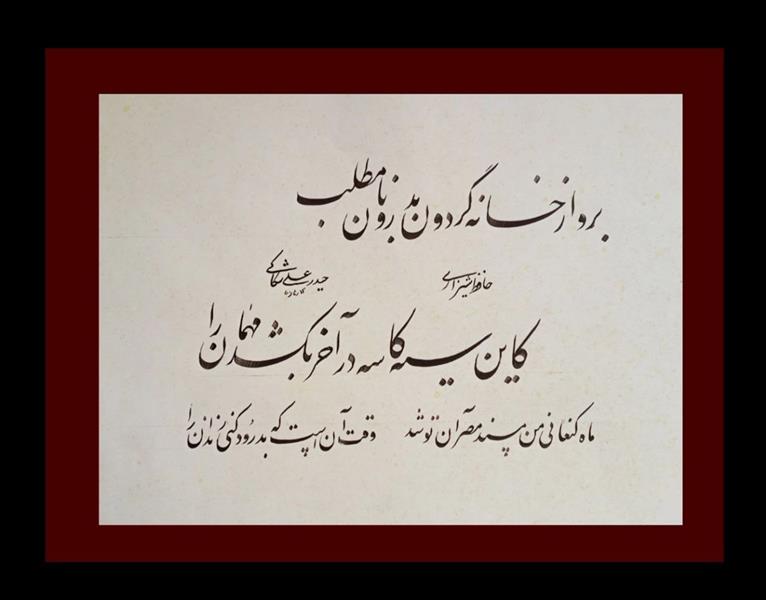 برو از خانه گردون بدر و نان مطلب
حافظ شیرازی حیدر علی
کاین سیه کاسه در آخر بکشد مهمان را
ماه کنعانی من مسند مصر آن تو شد وقت آن است که بدرود کنی زندان را